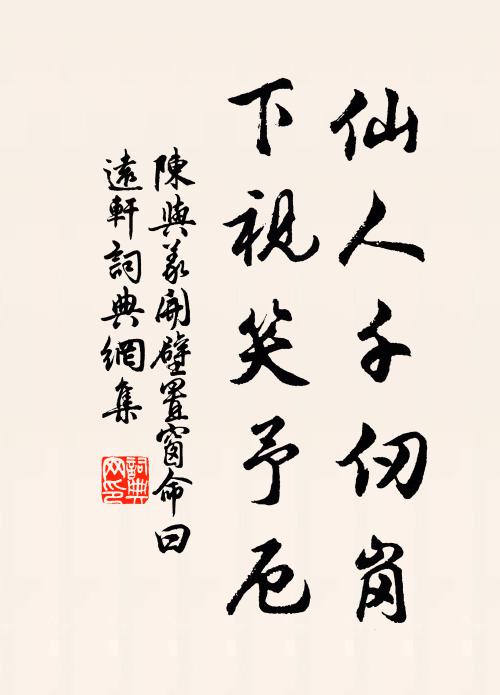 仙人千仞崗
下視笑予卮
陳與義開壁置窗命曰
遠軒詞典網集
詞典
网印